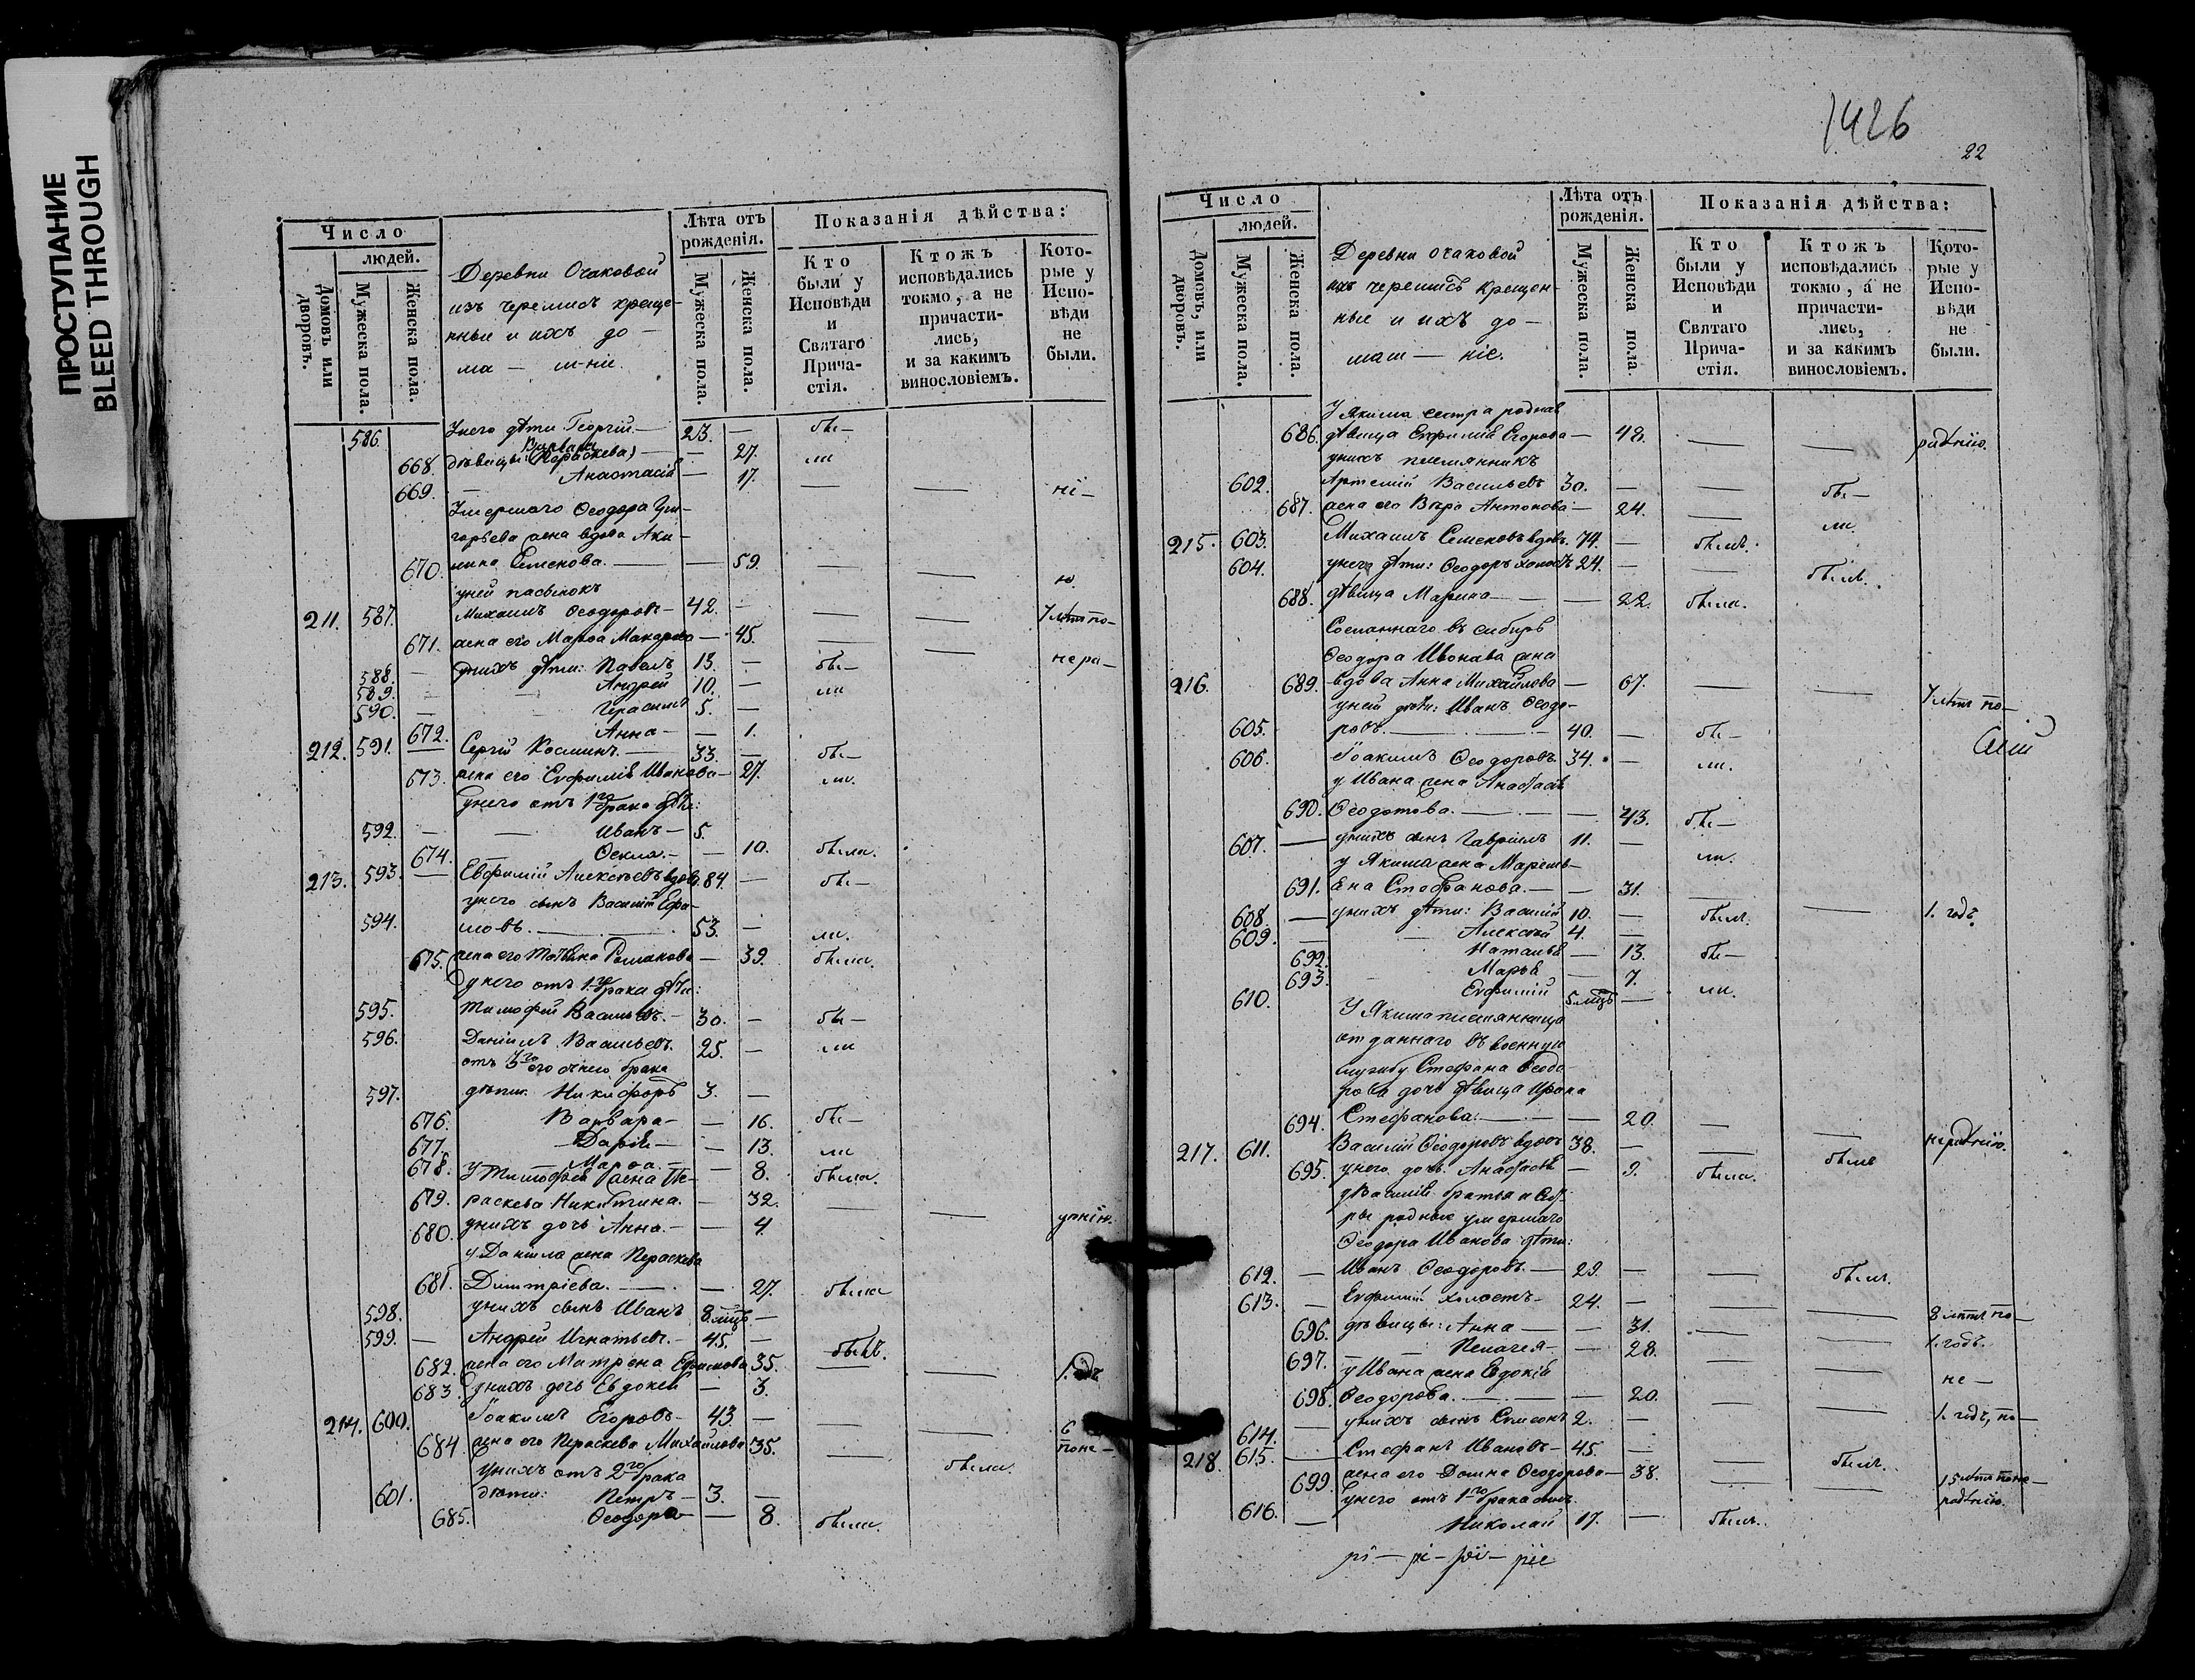 ПРОСТУПАНИЕ
BLEED THROUGH
Число
людей.
Домовъ или дворовъ.
Мужеска пола.
Женска пола.
Деревни Очаковой
изъ черемисъ креще-
нные и ихъ до-
ма — ш-ніе.
Лѣта отъ рожденія.
Мужеска пола.
Женска пола.
Показанія дѣйства:
Кто были у Исповѣди и Святаго Прича- стія.
Ктожъ исповѣдались токмо, а не причасти- лись, и за какимъ винословіемъ.
Кото- рые у Испо- вѣди не были.
586. У него дѣти Георгій — 23. — бы—
668. дѣвицы: Варвара (Параскева) — 27. ли
669. — Анастасія — 17. — — ні—
Умершаго Ѳеодора Гри-
горьева жена вдова Аки-
670. лина Семенова. — — 59. — — ю
у ней пасынокъ
211. 587. Михаилъ Ѳеодоровъ — 42. — — — 7 лѣтъ по—
671. жена его Марѳа Макарова — 45. — — нера—
588. — у нихъ дѣти: Павелъ 13. — бы—
589. — Андрей 10. — ли
590. — Герасимъ 5. —
672. Анна — — 1.
212. 591. — Сергій Косминъ. — 33. — бы—
673. жена его Евфимія Иванова — 27. ли.
у него отъ 1го брака дѣти:
592. — — Иванъ — 5.
674. — Ѳекла. — — 10. была.
213. 593. — Евфимій Алексѣевъ вдовъ 84. — бы—
у него сынъ Василій Ефи-
594. мовъ. — 53. — ли.
675. жена его Татьяна Романова — 39. была.
у него отъ 1го брака дѣти:
595. Тимофей Васильевъ. — 30. — бы—
596. Даніилъ Васильевъ. 25. — ли
отъ 3го его очнего брака
597. дѣти: Никифоръ 3. —
676. Варвара — — 16. бы—
677. — Дарія — — 13. ли
678. — Марѳа. — — 8. была.
у Тимофея жена Па-
679. раскева Никитина. — 32. — — упнію.
680. у нихъ дочь Анна. — — 4.
у Даніила жена Параскева
681. Димитріева. — — 27. была
598. у нихъ сынъ Иванъ 8 мцъ —
599. — Андрей Игнатьевъ. — 45. — былъ.
682. жена его Матрена Ефимова 35. — — 1 годъ
683. у нихъ дочь Евдокія — 3.
214. 600. Іоакимъ Егоровъ — 43. — — — 6
684 жена его Параскева Михайлова 35. — была. поне—
У нихъ отъ 2го брака
601. дѣти: Петръ — 3. —
685. Ѳеодора — 8 была.
1426
22
Число
людей.
Домовъ, или дворовъ.
Мужеска пола.
Женска пола.
Деревни Очаковой
изъ черемисъ крещен-
ные и ихъ до—
маш — ніе.
Лѣта отъ рожденія.
Мужеска пола.
Женска пола.
Показанія дѣйства:
Кто были у Исповѣди и Святаго Прича- стія.
Ктожъ исповѣдались токмо, а не причасти- лись, и за какимъ винословіемъ.
Кото- рые у Испо- вѣди не были.
У Якима сестра родная
686. дѣвица Евфимія Егорова — 48. — — радѣнію.
у нихъ племянникъ
602. Артемій Васильевъ 30. — — бы—
687. жена его Вѣра Антонова — 24. — ли.
215. 603. Михаилъ Семеновъ вдовъ. 74. — былъ.
604. у него дѣти: Ѳеодоръ холостъ 24. — — былъ.
688. дѣвица Марина — — 22. была.
Сосланнаго въ Сибирь
Ѳеодора Иванова жена
216. 689. вдова Анна Михайлова — 67. — — 7 лѣтъ по—
у ней дѣти: Иванъ Ѳеодо-
605. ровъ. — 40. — бы—
606. Іоакимъ Ѳеодоровъ 34. — ли.
у Ивана жена Анастасія
690. Ѳедотова. — — 43. бы—
607. — у нихъ сынъ Гавріилъ 11. — ли.
у Якима жена Марем-
691. яна Стефанова. — — 31. — — 1. годъ
608. — у нихъ дѣти: Василій 10. — былъ.
609. — Алексѣй 4. —
692. Наталья — 13. бы—
693. Марья — 7. ли.
610. Евфимій 5 мцъ —
У Якима племянница
отданнаго въ военную
службу Стефана Ѳеодо-
рова дочь дѣвица Ирина
694. Стефанова. — — 20. — — нерадѣнію.
217. 611. Василій Ѳеодоровъ вдовъ 38. — — былъ
695. у него дочь Анастасія — 9. была.
у Василія братья и сест-
ры родные умершаго
Ѳеодора Иванова дѣти:
612. — Иванъ Ѳеодоровъ. — 29. — — былъ.
613. — Евфимій холостъ — 24. — — — 8 лѣтъ по—
696. дѣвицы: Анна — — 31. — — 1. годъ.
697. — Пелагея — — 28. — — не—
у Ивана жена Евдокія
698. Ѳеодорова. — — 20. — — 1. годъ, по—
614. — у нихъ сынъ Симеонъ 2. —
218. 615. — Стефанъ Ивановъ — 45. — — былъ.
699. жена его Домна Ѳеодорова — 38. — — 15 лѣтъ поне—
радѣнію.
у него отъ 1го брака сынъ
616. — Николай 17. — былъ.